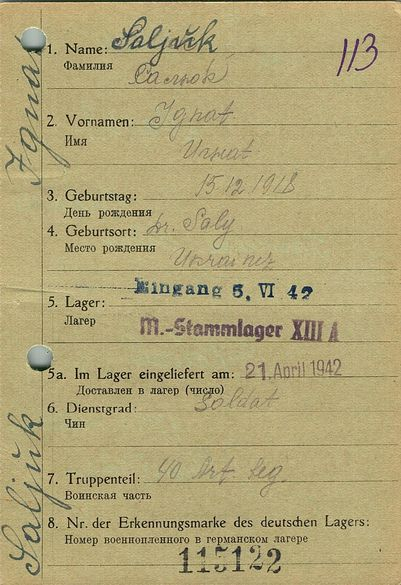 113
1. Name: Saljŭk
Фамилия Салюк
2. Vornamen: Ignat
Имя Игнат
3. Geburtstag: 15.12.1918
День рождения
4. Geburtsort: Dr. Saly
Место рождения Ukrainez
Eingang 5. VI 42
5. Lager:
Лагер M.-Stammlager XIII A
5a. Im Lager eingeliefert am: 21. April 1942
Доставлен в лагер (число)
6. Dienstgrad: Soldat
Чин
7. Truppenteil: 40 Art. Reg.
Воинская часть
8. Nr. der Erkennungsmarke des deutschen Lagers:
Номер военнопленного в германском лагере
115122
Saljŭk Ignat